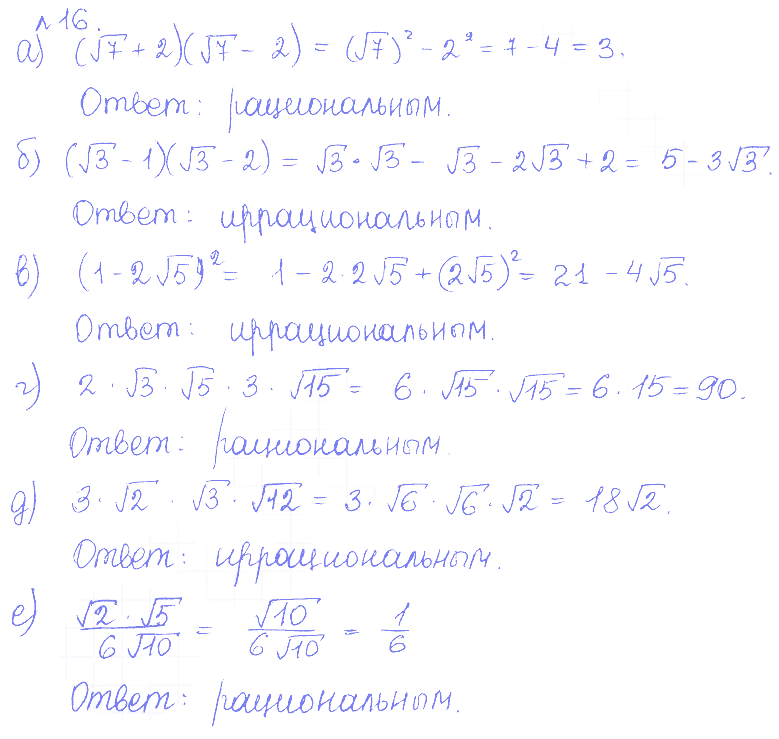 №16.
а) (√7 + 2)(√7 - 2) = (√7)² - 2² = 7 - 4 = 3.
Ответ: рациональным.
б) (√3 - 1)(√3 - 2) = √3 · √3 - √3 - 2√3 + 2 = 5 - 3√3.
Ответ: иррациональным.
в) (1 - 2√5)² = 1 - 2·2√5 + (2√5)² = 21 - 4√5.
Ответ: иррациональным.
г) 2 · √3 · √5 · 3 · √15 = 6 · √15 · √15 = 6 · 15 = 90.
Ответ: рациональным.
д) 3 · √2 · √3 · √12 = 3 · √6 · √6 · √2 = 18√2.
Ответ: иррациональным.
е) (√2 · √5)/(6√10) = √10/(6√10) = 1/6
Ответ: рациональным.